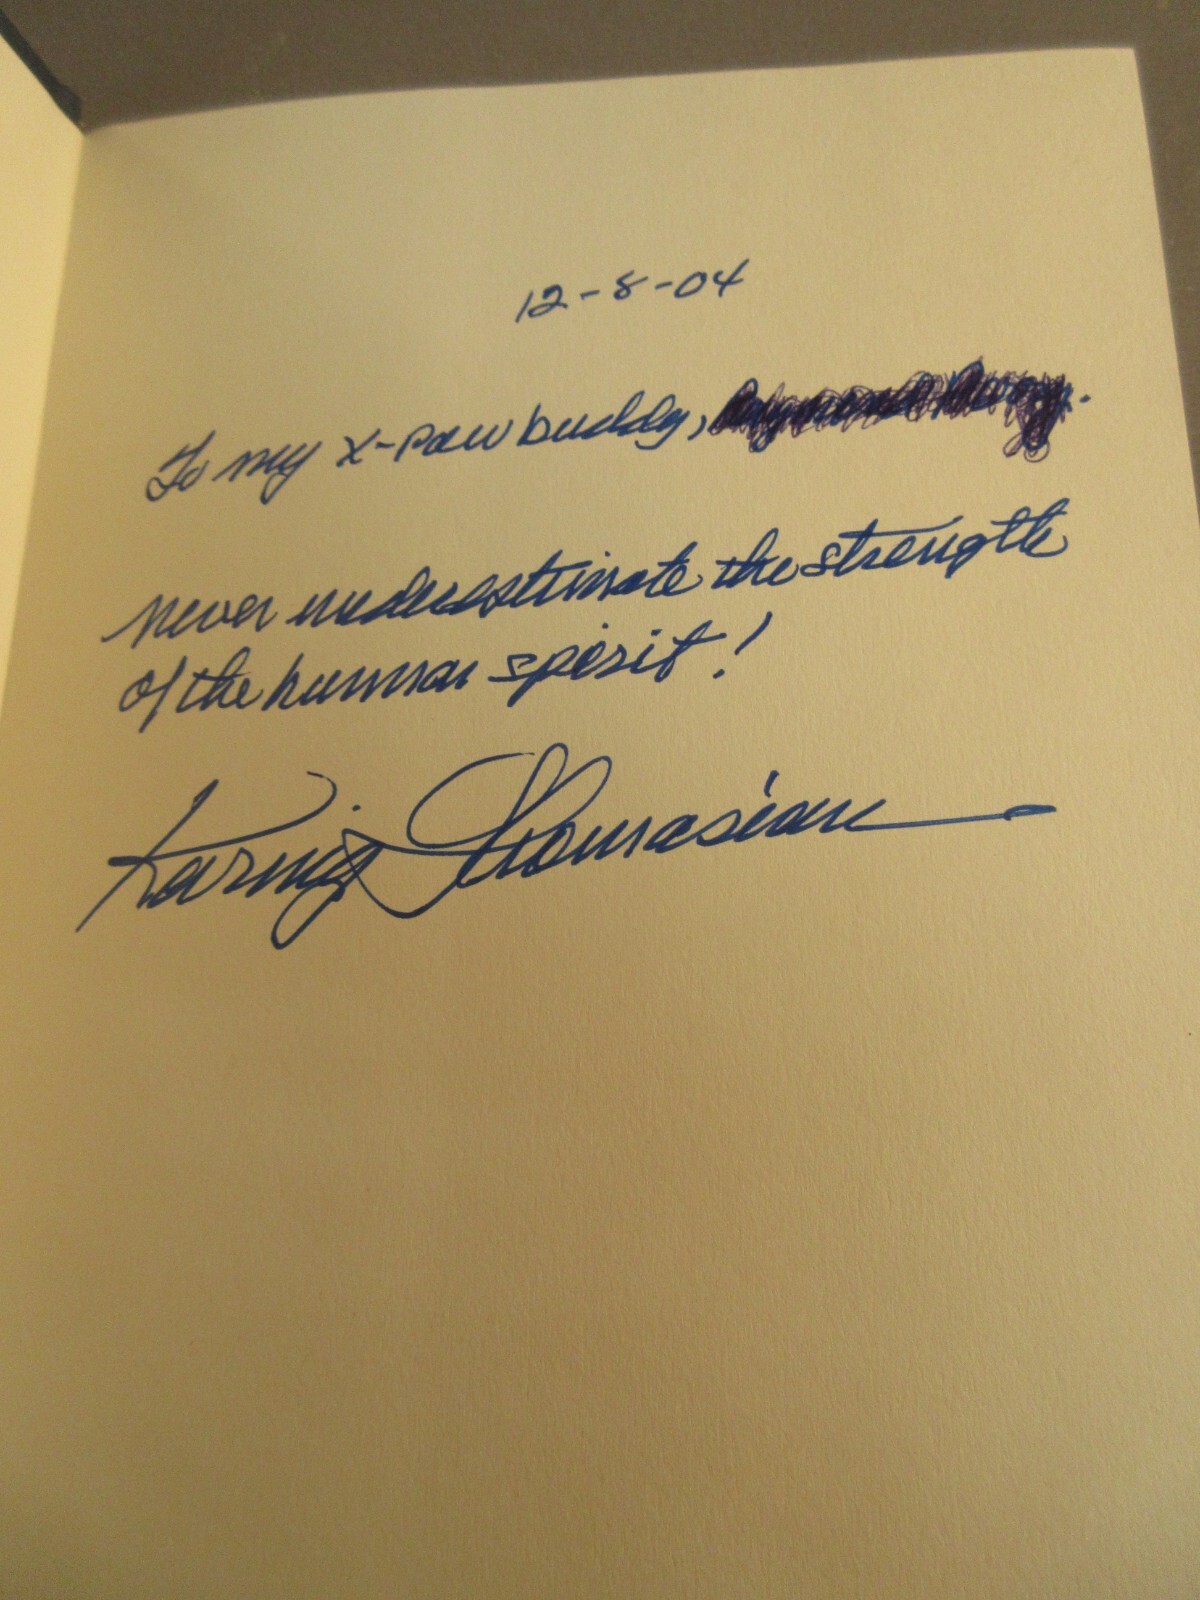 12-8-04
To my x-pow buddy,
Never underestimate the strength
of the human spirit!
Karnig Thomasian